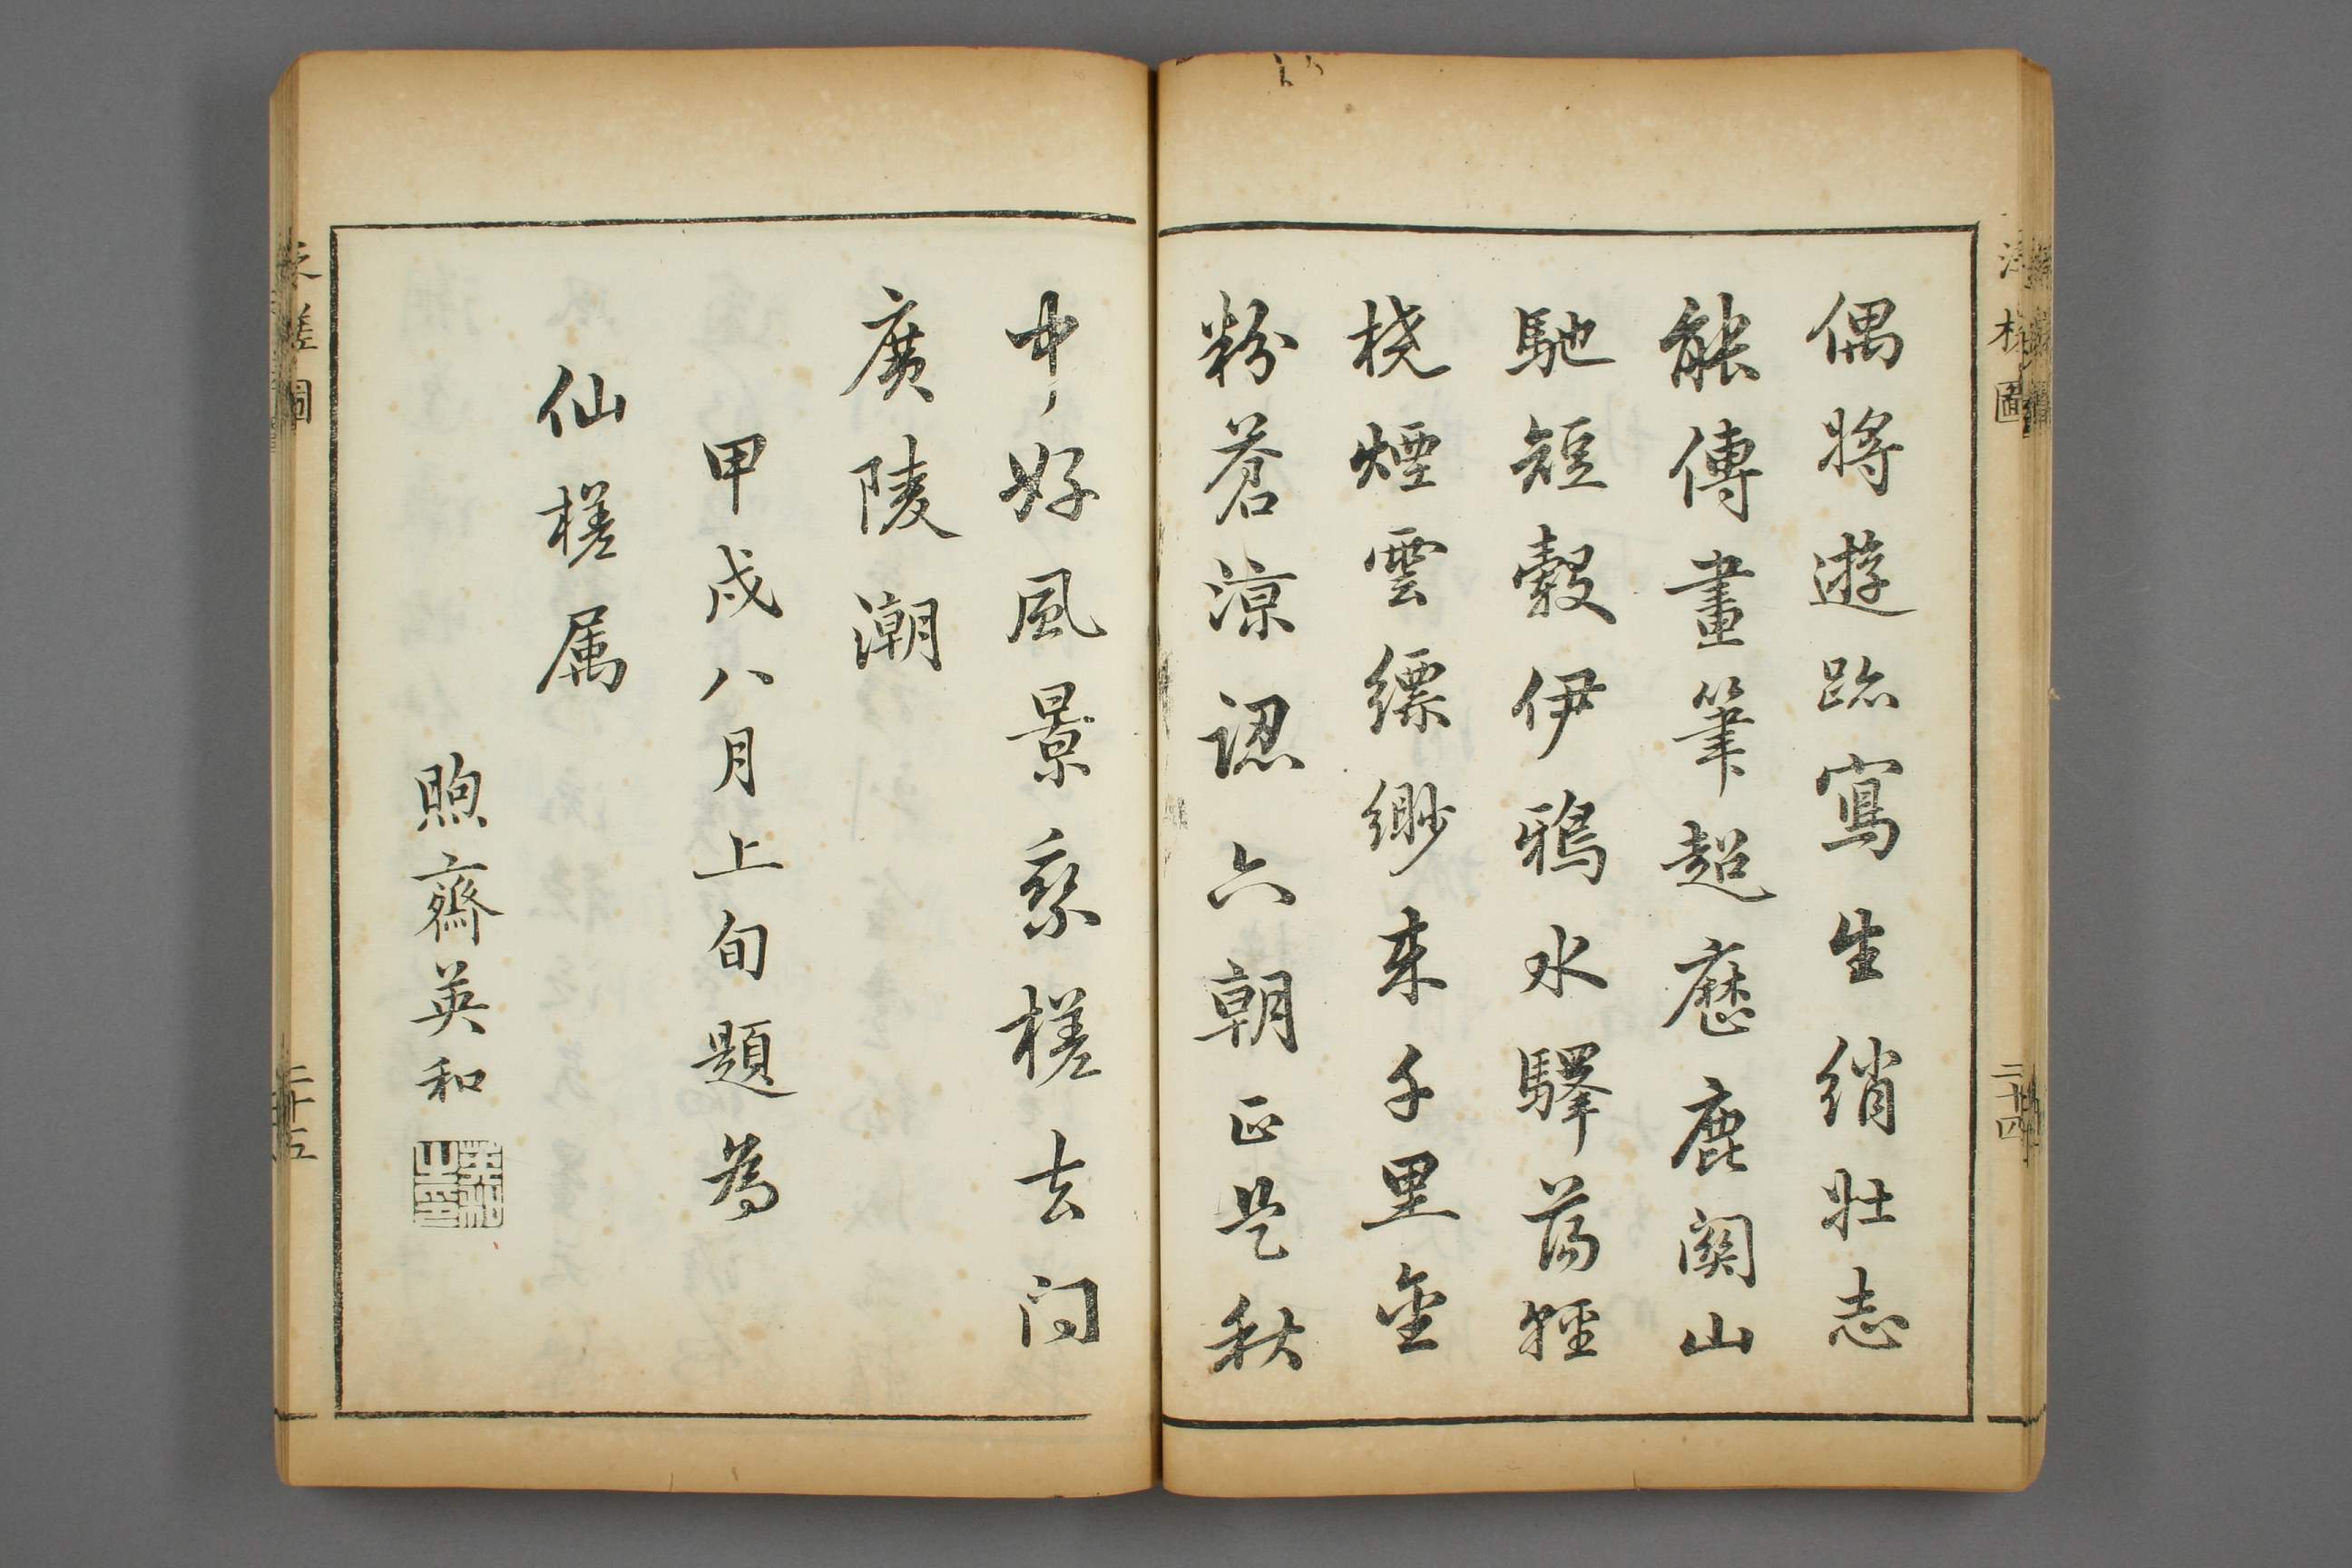 偶將遊跡寫生綃壯志
能傳畫筆超歷鹿關山
馳短轂伊鴉水驛蕩輕
橈煙雲縹緲來千里金
粉蒼涼認六朝正是秋
二十四
中好風景乘槎去问
廣陵潮
甲戌八月上旬題為
仙槎属
煦齋英和
英和之印
二十五